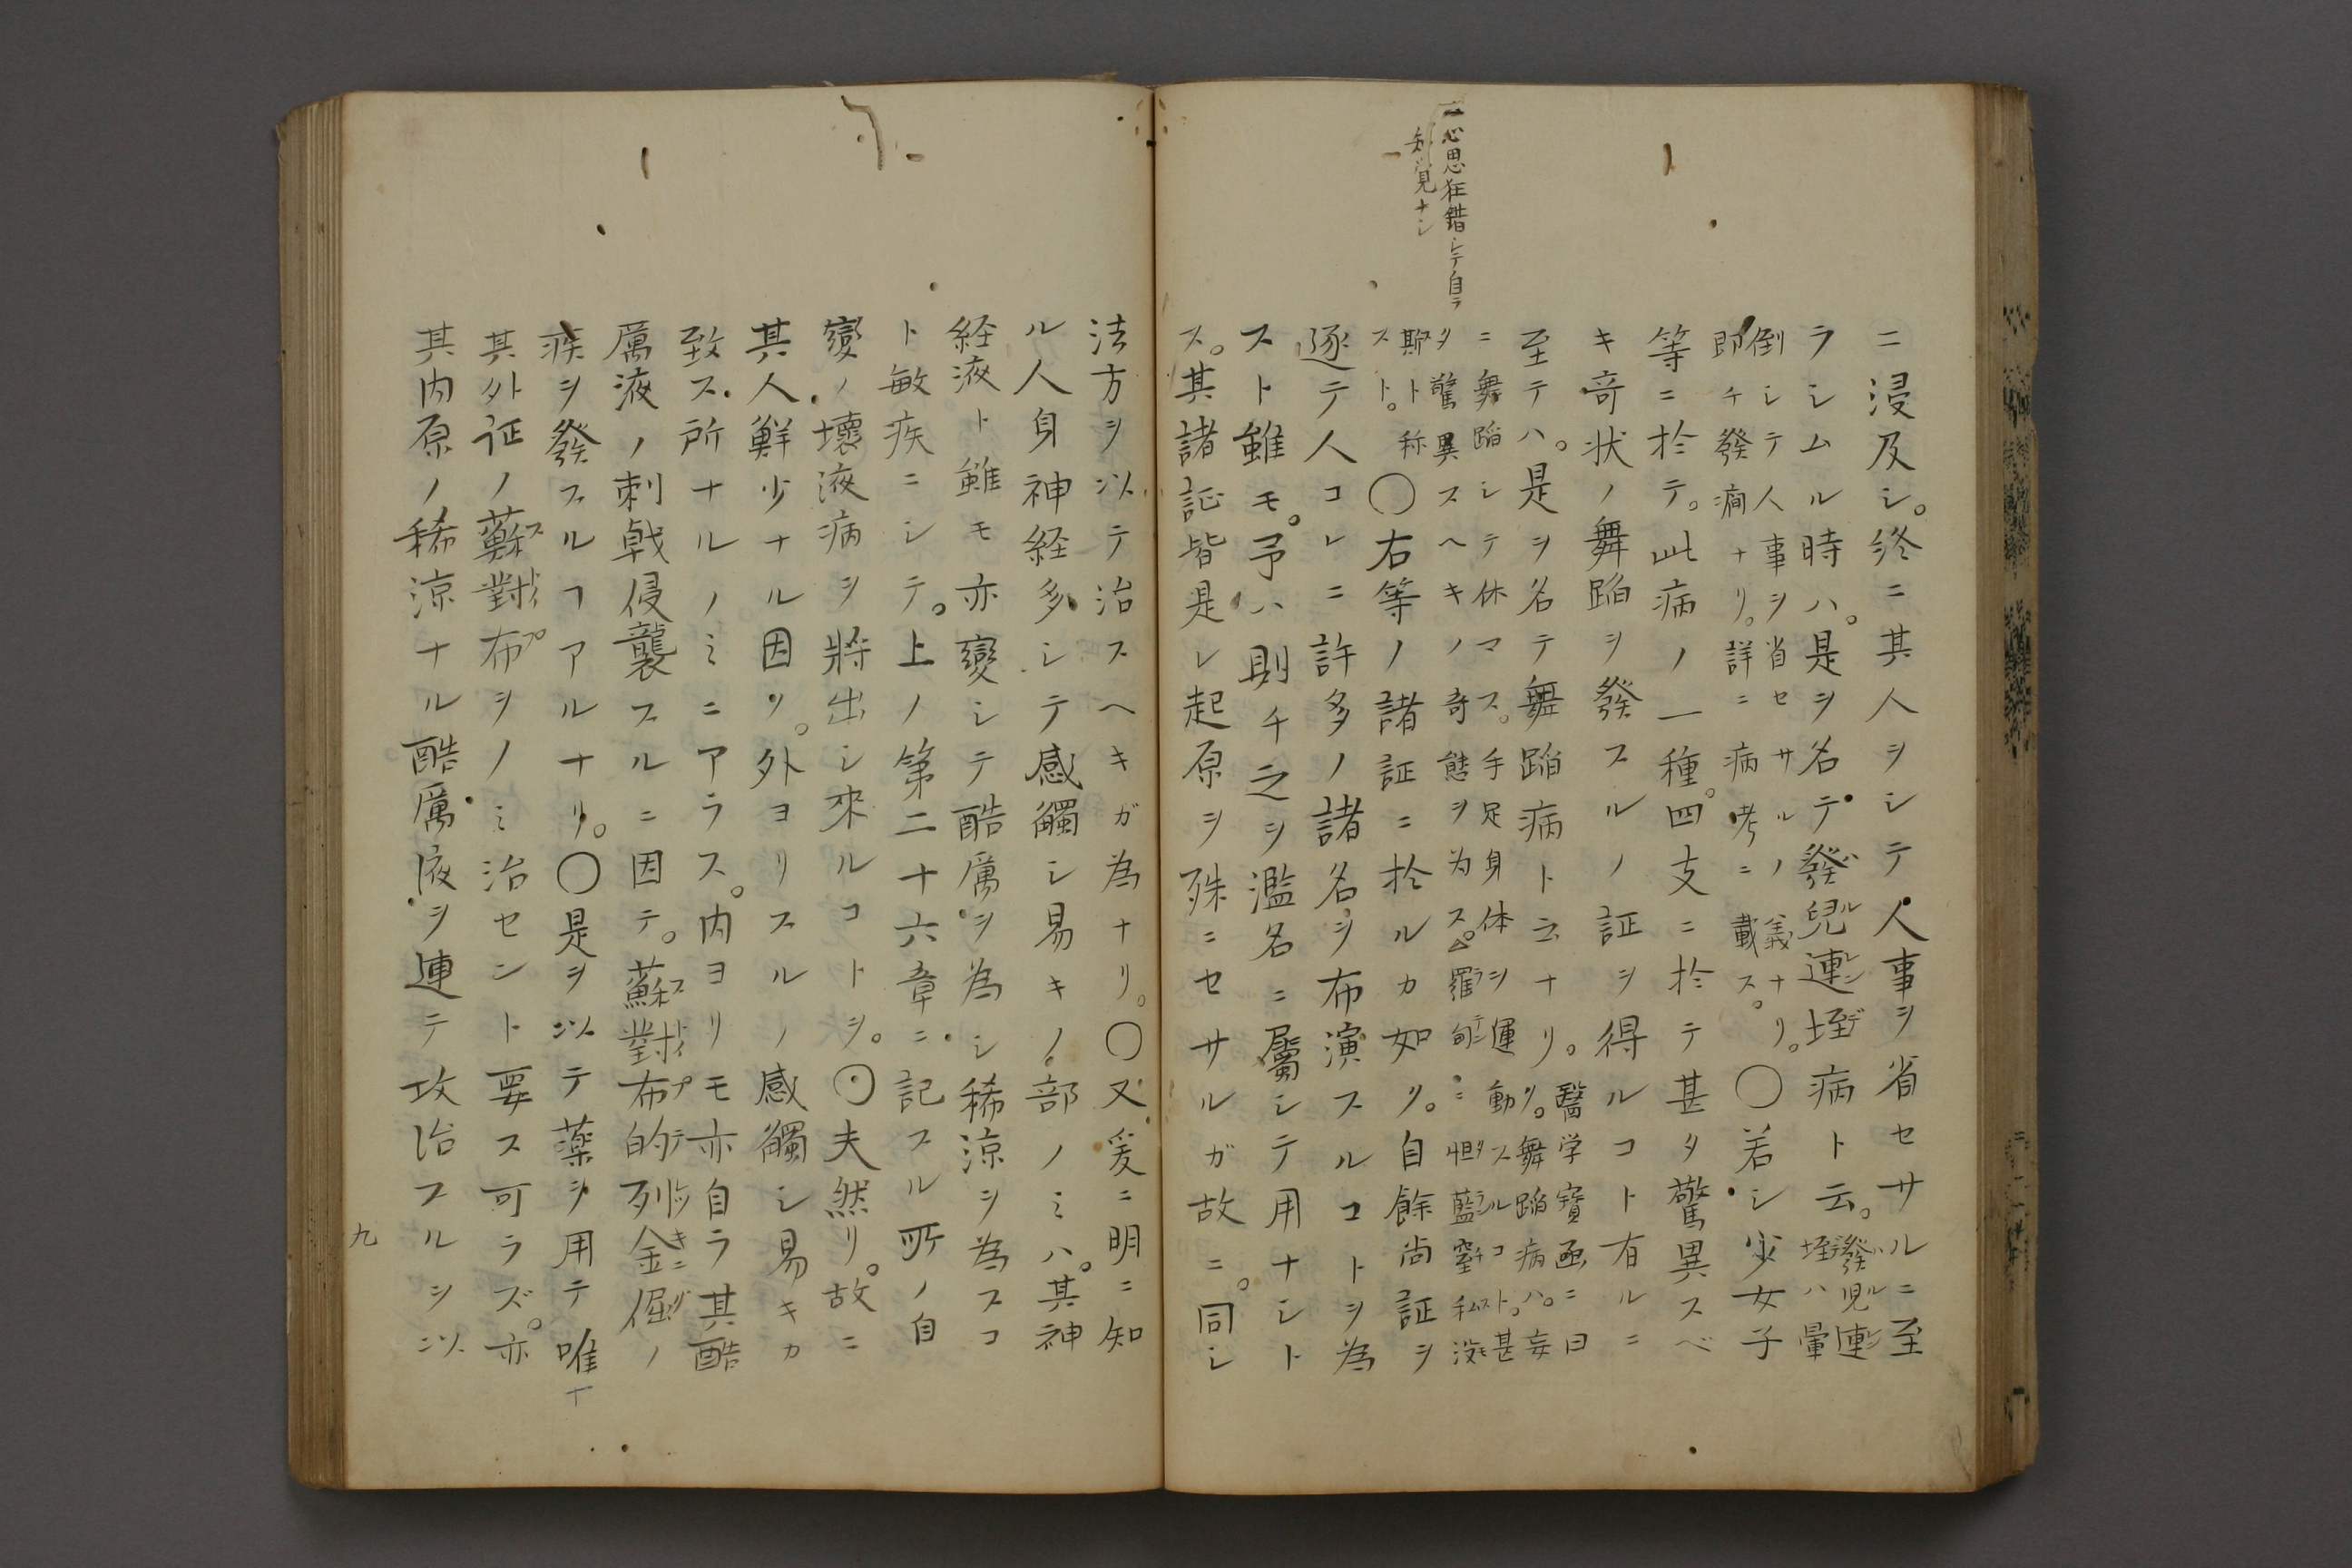 一心思狂錯シテ自ラ
知覚ナシ
ニ浸及シ。終ニ其人ヲシテ人事ヲ省セサルニ至
ラシムル時ハ。是ヲ名テ發兒連垤病ト云。發児連
垤ハ暈
倒シテ人事ヲ省セサルノ義ナリ。
即チ發癇ナリ。詳ニ病考ニ載ス。〇若シ少女子
等ニ於テ。此病ノ一種。四支ニ於テ甚タ驚異スベ
キ奇状ノ舞蹈ヲ發スルノ証ヲ得ルコト有ルニ
至テハ。是ヲ名テ舞蹈病ト云ナリ。醫学寶函ニ曰
ク。舞蹈病ハ。妄
ニ舞蹈シテ休マス。手足身体ヲ運動スルコト。甚
タ驚異スヘキノ奇態ヲ為ス。羅甸ニ怛藍窒私没
斯ト称
スト。〇右等ノ諸証ニ於ルカ如リ。自餘尚証ヲ
逐テ人コレニ許多ノ諸名ヲ布演スルコトヲ為
スト雖モ。予ハ則チ之ヲ濫名ニ屬シテ用ナシト
ス。其諸証皆是レ起原ヲ殊ニセサルガ故ニ。同シ
法方ヲ以テ治スヘキガ為ナリ。〇又爰ニ明ニ知
ル人身神経多シテ感觸シ易キノ部ノミハ。其神
経液ト雖モ亦變シテ酷厲ヲ為シ稀涼ヲ為スコ
ト敏疾ニシテ。上ノ第二十六章ニ記スル所ノ自
變ノ壞液病ヲ将出シ來ルコトヲ。〇夫然リ。故ニ
其人鮮少ナル因リ。外ヨリスルノ感觸シ易キカ
致ス所ナルノミニアラス。内ヨリモ亦自ラ其酷
厲液ノ刺戟侵襲スルニ因テ。蘇對布的列金倔ノ
疾ヲ發スルコアルナリ。〇是ヲ以テ藥ヲ用テ唯
其外証ノ蘇對布ヲノミ治セント要ス可ラズ。亦
其内原ノ稀涼ナル酷厲液ヲ連テ攻治スルヲ以
九